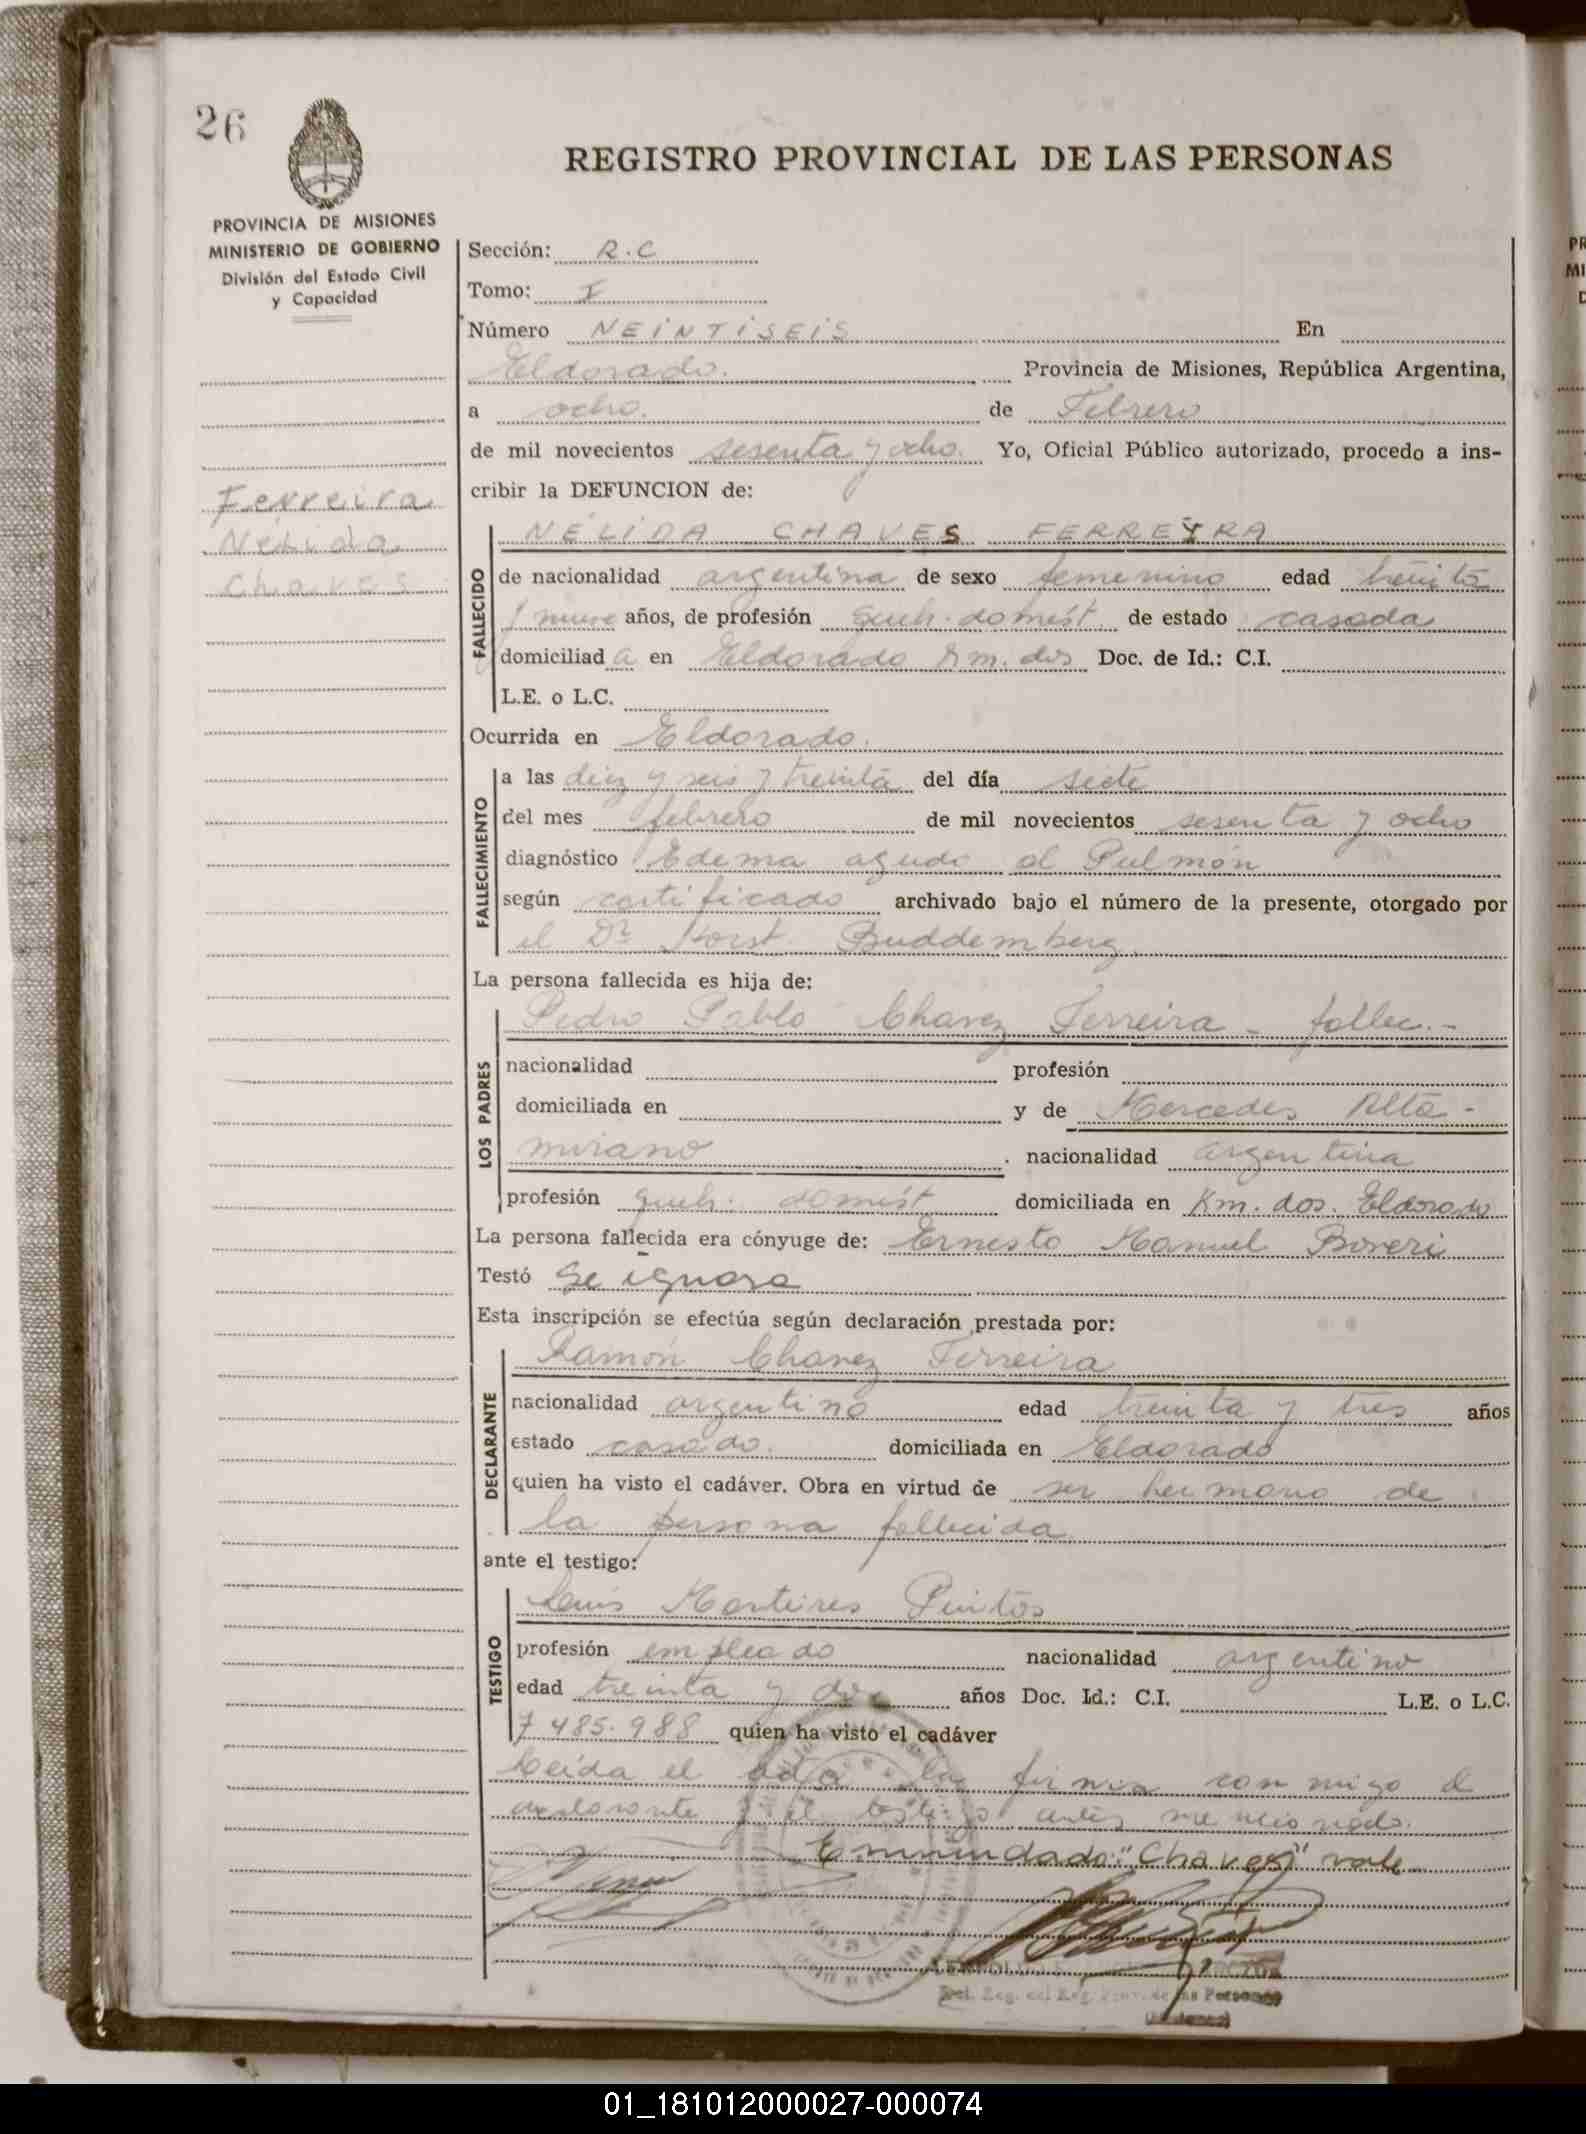 26
REGISTRO PROVINCIAL DE LAS PERSONAS
PROVINCIA DE MISIONES
MINISTERIO DE GOBIERNO
División del Estado Civil
y Capacidad
Ferreira
Nelida
Chaves
Sección: R.C
Tomo: I
Número NEINTISEIS En
Eldorado. Provincia de Misiones, República Argentina,
a ocho. de Febrero
de mil novecientos sesenta y ocho. Yo, Oficial Público autorizado, procedo a ins-
cribir la DEFUNCION de:
FALLECIDO
NÉLIDA CHAVES FERREYRA
de nacionalidad argentina de sexo femenino edad treinta
y nueve años, de profesión queh. domést. de estado casada
domiciliad a en Eldorado Km. dos Doc. de Id.: C.I.
L.E. o L.C.
Ocurrida en Eldorado.
FALLECIMIENTO
a las diez y seis y treinta del día siete
del mes febrero de mil novecientos sesenta y ocho
diagnóstico Edema agudo al Pulmón
según certificado archivado bajo el número de la presente, otorgado por
el Dr Horst Buddemberg
La persona fallecida es hija de:
LOS PADRES
Pedro Pablo Chavez Ferreira - fallec.-
nacionalidad profesión
domiciliada en y de Mercedes Alta-
mirano . nacionalidad argentina
profesión queh. domést domiciliada en Km. dos. Eldorado
La persona fallecida era cónyuge de: Ernesto Manuel Boveri
Testó Se ignora
Esta inscripción se efectúa según declaración prestada por:
DECLARANTE
Ramón Chavez Ferreira
nacionalidad argentino edad treinta y tres años
estado casado. domiciliada en Eldorado
quien ha visto el cadáver. Obra en virtud de ser hermano de
la persona fallecida
ante el testigo:
TESTIGO
Luis Martires Pintos
profesión empleado nacionalidad argentino
edad treinta y dos años Doc. Id.: C.I. L.E. o L.C.
7.485.988 quien ha visto el cadáver
Leída el acta la firma conmigo el
declarante y el testigo antes mencionado.
Emmendado: "Chaves" vale
Del. Reg. del Reg. Prov. de las Personas
(Misiones)
01_181012000027-000074